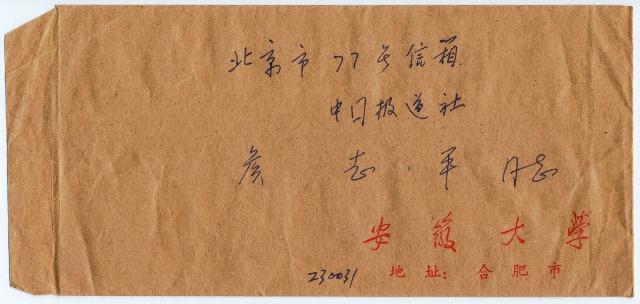 北京市77号信箱
中日报道社
志平同志
安徽大学
地址：合肥市
230031